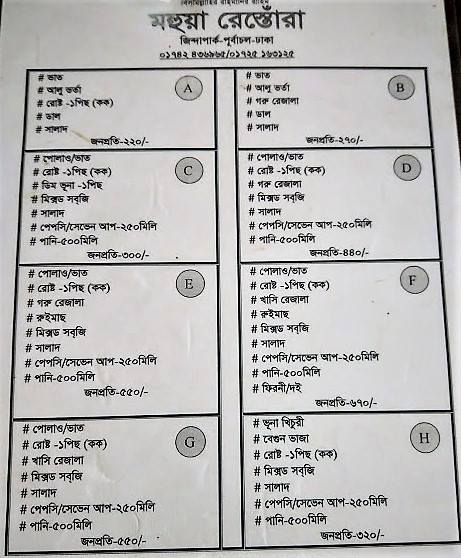 বিসমিল্লাহির রাহমানির রাহিম
মহুয়া রেস্তোরা
জিন্দাপার্ক-পূর্বাচল-ঢাকা
০১৭৪২ ৪৩৬৯৬৫/০১৭২৫ ১৬৩১২৫
A
# ভাত
# আলু ভর্তা
# রোষ্ট -১পিছ (কক)
# ডাল
# সালাদ
জনপ্রতি-২২০/-
B
# ভাত
# আলু ভর্তা
# গরু রেজালা
# ডাল
# সালাদ
জনপ্রতি-২৭০/-
C
# পোলাও/ভাত
# রোষ্ট -১পিছ (কক)
# ডিম ভূনা -১পিছ
# মিক্সড সবৃজি
# সালাদ
# পেপসি/সেভেন আপ-২৫০মিলি
# পানি-৫০০মিলি
জনপ্রতি-৩০০/-
D
# পোলাও/ভাত
# রোষ্ট -১পিছ (কক)
# গরু রেজালা
# মিক্সড সবৃজি
# সালাদ
# পেপসি/সেভেন আপ-২৫০মিলি
# পানি-৫০০মিলি
জনপ্রতি-৪৪০/-
E
# পোলাও/ভাত
# রোষ্ট -১পিছ (কক)
# গরু রেজালা
# রুইমাছ
# মিক্সড সবৃজি
# সালাদ
# পেপসি/সেভেন আপ-২৫০মিলি
# পানি-৫০০মিলি
জনপ্রতি-৫৫০/-
F
# পোলাও/ভাত
# রোষ্ট -১পিছ (কক)
# খাসি রেজালা
# রুইমাছ
# মিক্সড সবৃজি
# সালাদ
# পেপসি/সেভেন আপ-২৫০মিলি
# পানি-৫০০মিলি
# ফিরনী/দই
জনপ্রতি-৬৭০/-
G
# পোলাও/ভাত
# রোষ্ট -১পিছ (কক)
# খাসি রেজালা
# মিক্সড সবৃজি
# সালাদ
# পেপসি/সেভেন আপ-২৫০মিলি
# পানি-৫০০মিলি
জনপ্রতি-৫৫০/-
H
# ভূনা খিচুরী
# বেগুন ভাজা
# রোষ্ট -১পিছ (কক)
# মিক্সড সবৃজি
# সালাদ
# পেপসি/সেভেন আপ-২৫০মিলি
# পানি-৫০০মিলি
জনপ্রতি-৩২০/-